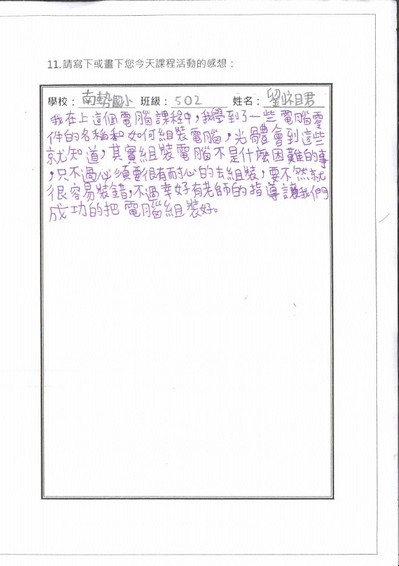 11.請寫下或畫下您今天課程活動的感想：
學校：南勢國小 班級：502 姓名：劉君
我在上這個電腦課程中，我學到了一些電腦零
件的名稱和如何組裝電腦，光體會到這些
就知道，其實組裝電腦不是什麼困難的事
，只不過必須要很有耐心的去組裝，要不然就
很容易裝錯，不過幸好有老師的指導讓我們
成功的把電腦組裝好。